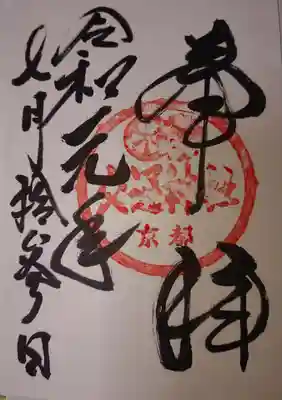 奉拝
京都
令和元年
七月拾参日